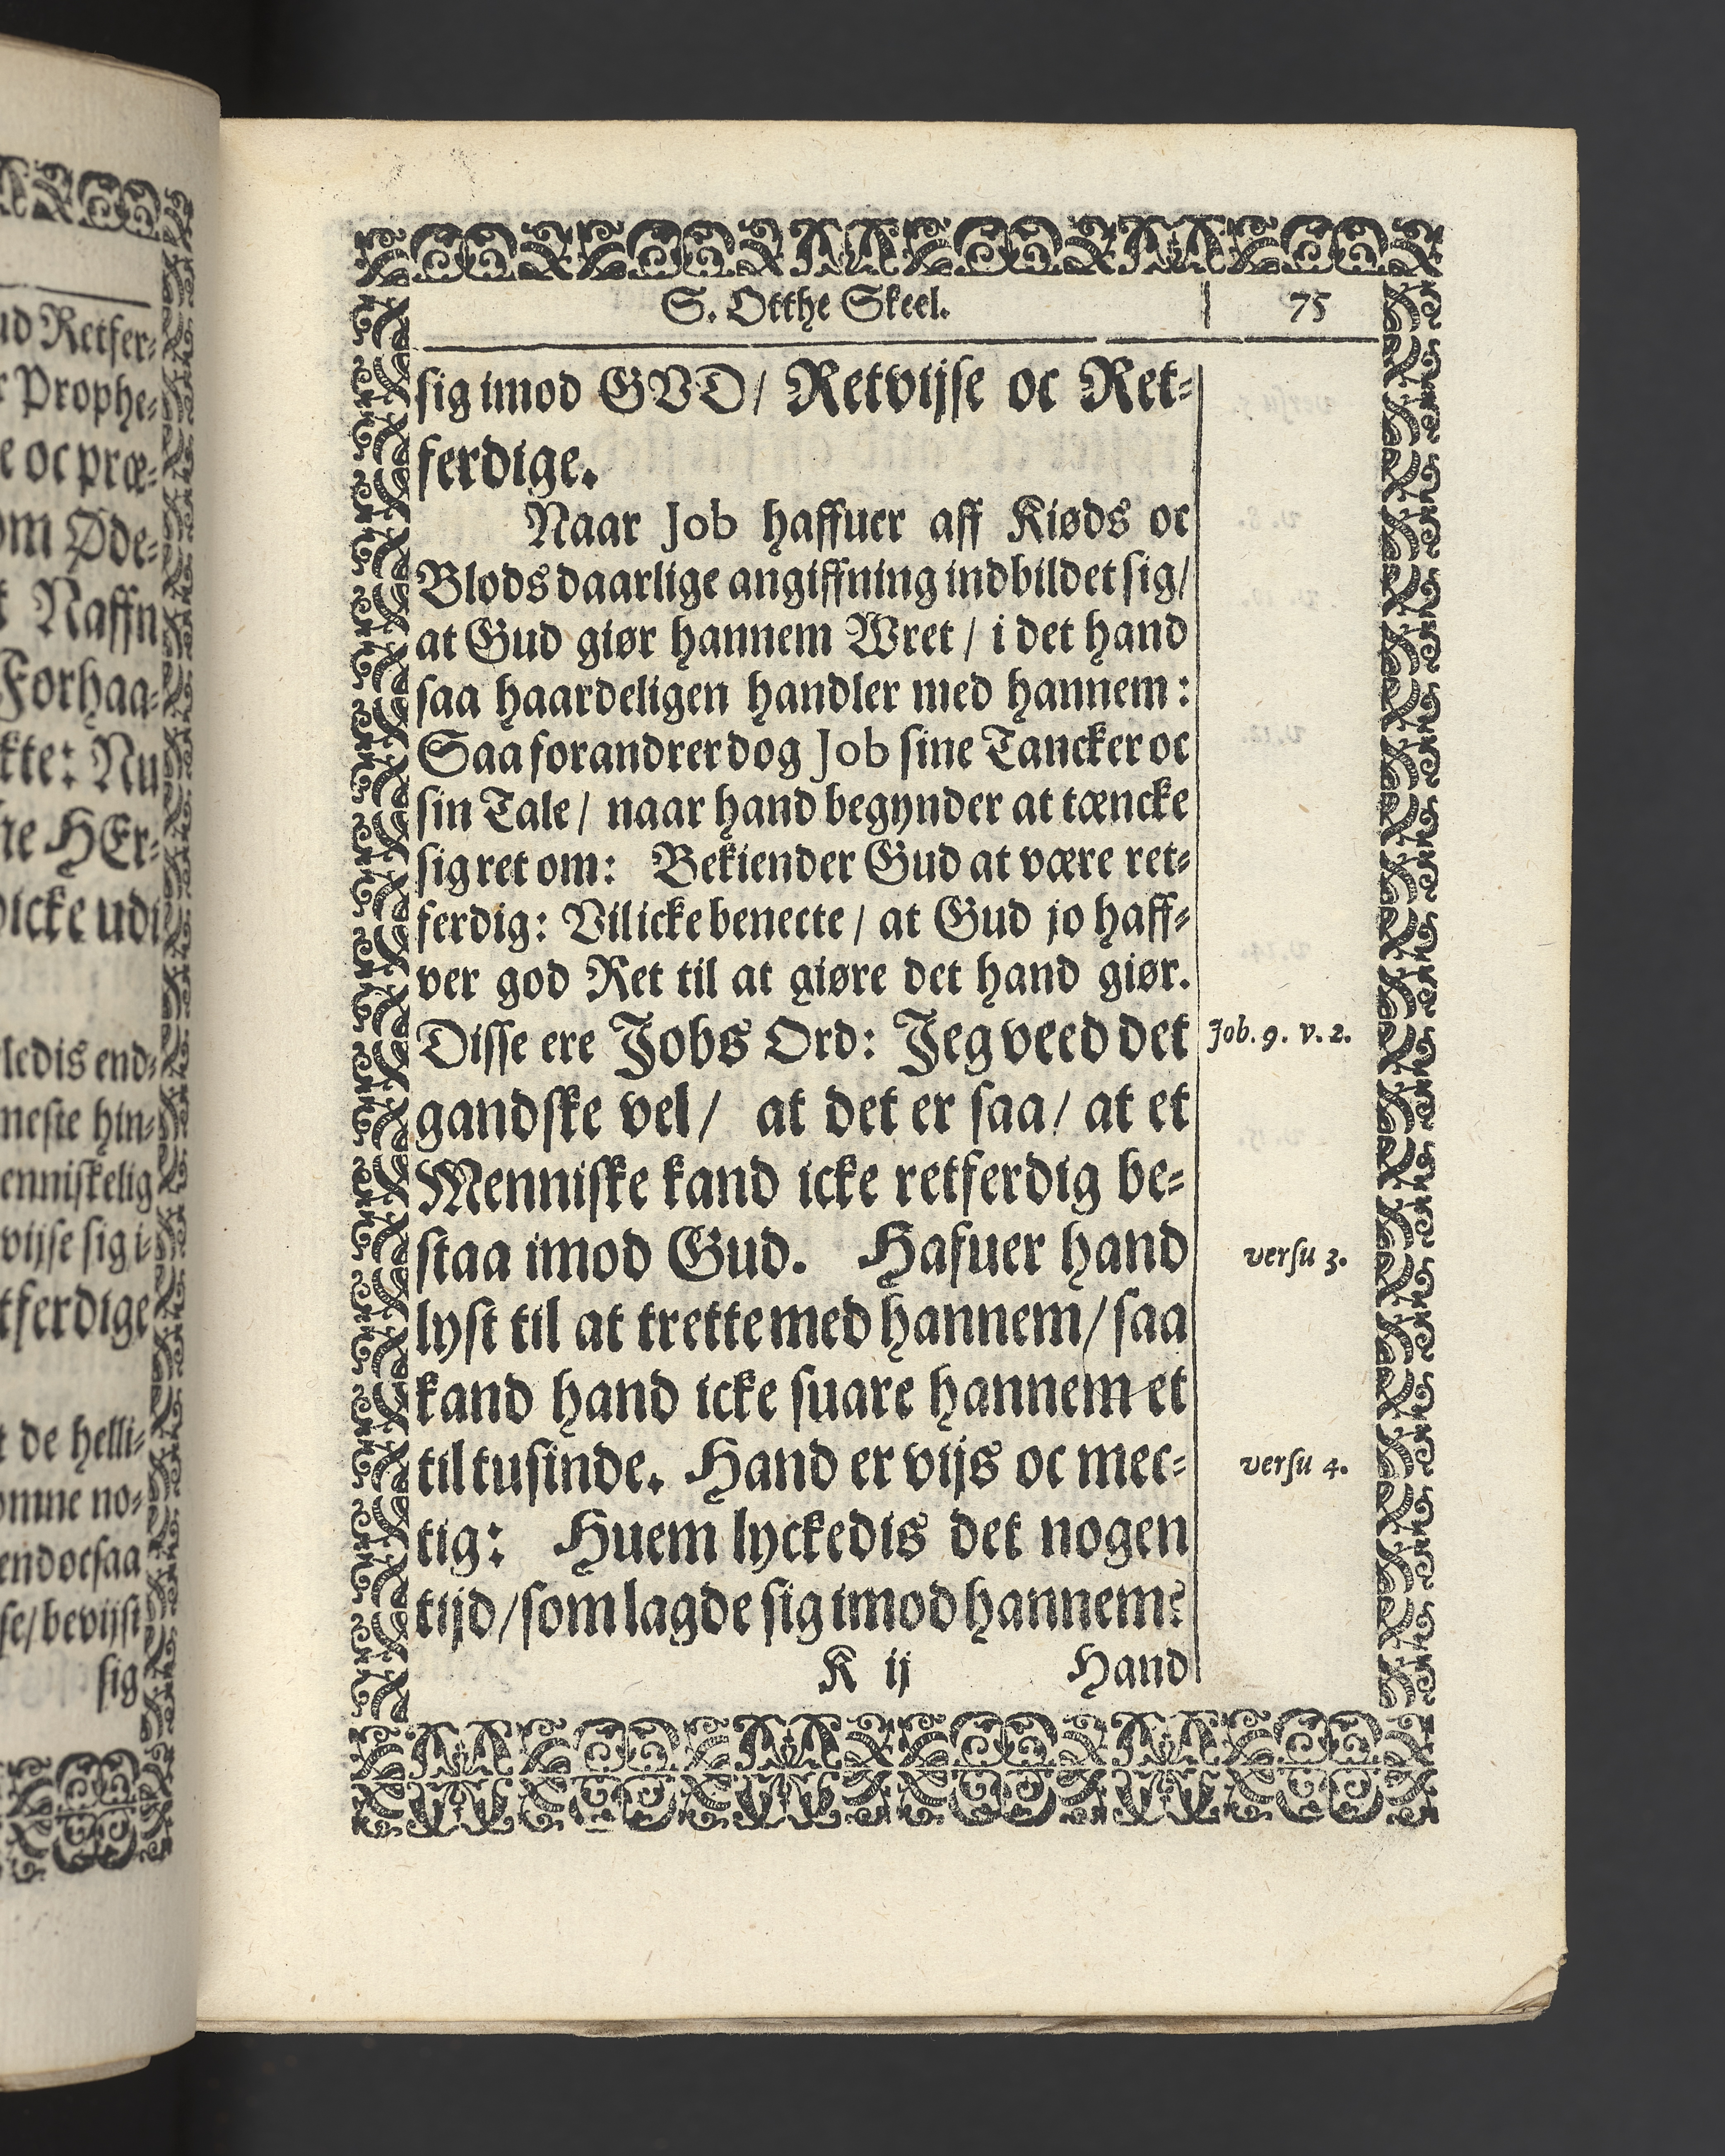 ud Retfer⸗
Prophe⸗
e oc præ⸗
om Øde⸗
Naffn
Forhaa⸗
kte: Nu
ne HEr⸗
icke udi
ledis end⸗
neste hin⸗
enniskelig
vijse sig i⸗
tferdige
de helli⸗
omne no⸗
end ocsaa
se/ bevijst
sig
S. Otthe Skeel. 75
sig imod GVD/ Retvijse oc Ret⸗
ferdige.
Naar Job haffuer aff Kiøds oc
Blods daarlige angiffning indbildet sig/
at Gud giør hannem Wret / i det hand
saa haardeligen handler med hannem:
Saa forandrer dog Job sine Tancker oc
sin Tale / naar hand begynder at tæncke
sig ret om: Bekiender Gud at være ret⸗
ferdig: Vil icke benecte / at Gud jo haff⸗
ver god Ret til at giøre det hand giør.
Disse ere Jobs Ord: Jeg veed det Job. 9. v. 2.
gandske vel/ at det er saa/ at et
Menniske kand icke retferdig be⸗
staa imod Gud. Hafuer hand versu 3.
lyst til at trette med hannem/ saa
kand hand icke suare hannem et
til tusinde. Hand er vijs oc mec⸗ versu 4.
tig: Huem lyckedis det nogen
tijd/ som lagde sig imod hannem?
K ij Hand